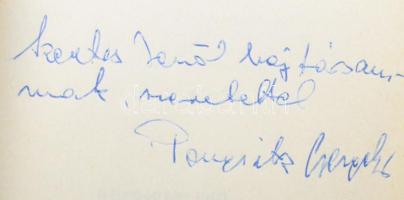 Szentes Jenő bajtársam-
nak, szeretettel
Pongrátz Gergely